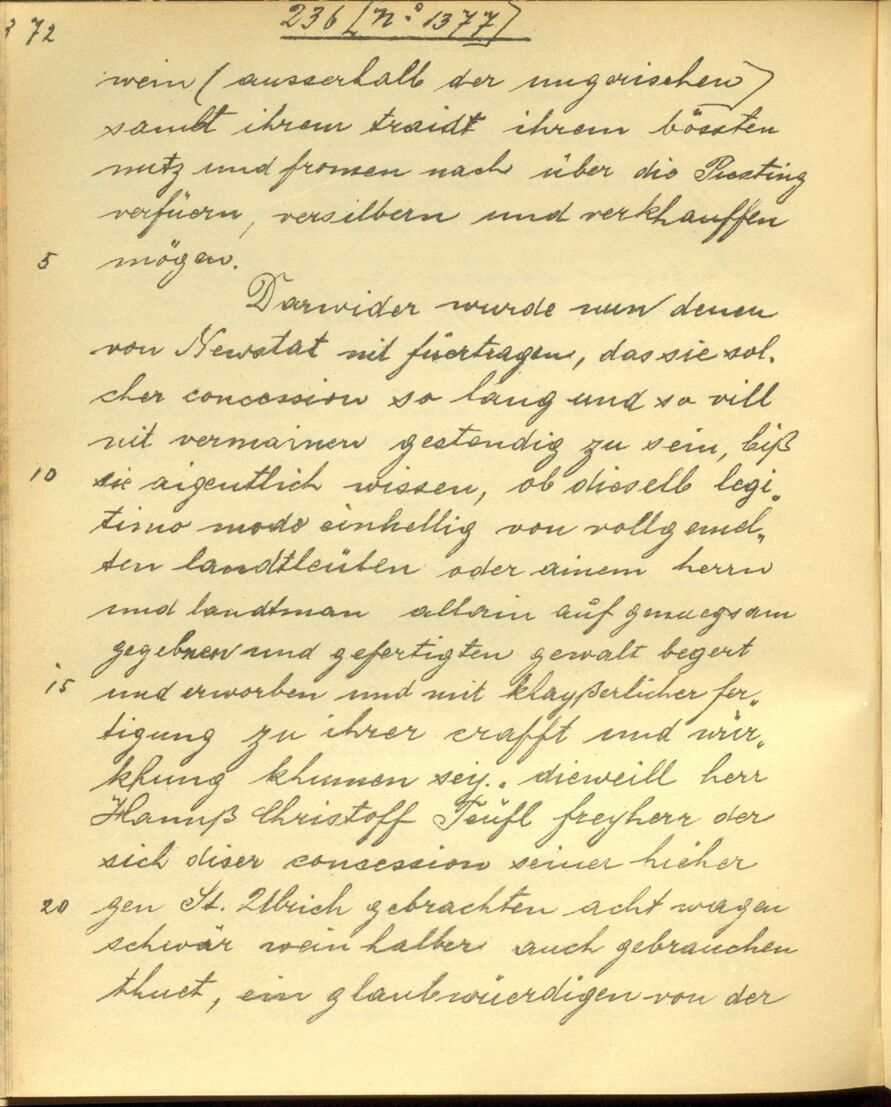 372
236 [No 1377]
wein (ausserhalb der ungarischen)
sambt ihrem traidt ihrem bössten
nutz und fromen nach über die Piesting
verfüern, versilbern und verkhauffen
5 mögen.
Darwider wurde nun denen
von Newstat nit füertragen, das sie sol-
cher concession so lang und so vill
nit vermainen gestendig zu sein, biß
10 sie aigentlich wissen, ob dieselb legi„
timo modo einhellig von vollgemel„
ten landtleüten oder ainem herrn
und landtman allain auf genuegsam
gegebnen und gefertigten gewalt begert
15 und erworben und mit khayßerlicher fer„
tigung zu ihrer crafft und wür„
khung khumen sey. dieweill herr
Hannß Christoff Teüfl freyherr der
sich diser concession seiner hieher
20 gen St. Ulrich gebrachten acht wagen
schwär wein halber auch gebrauchen
thuet, ein glaubwüerdigen von der